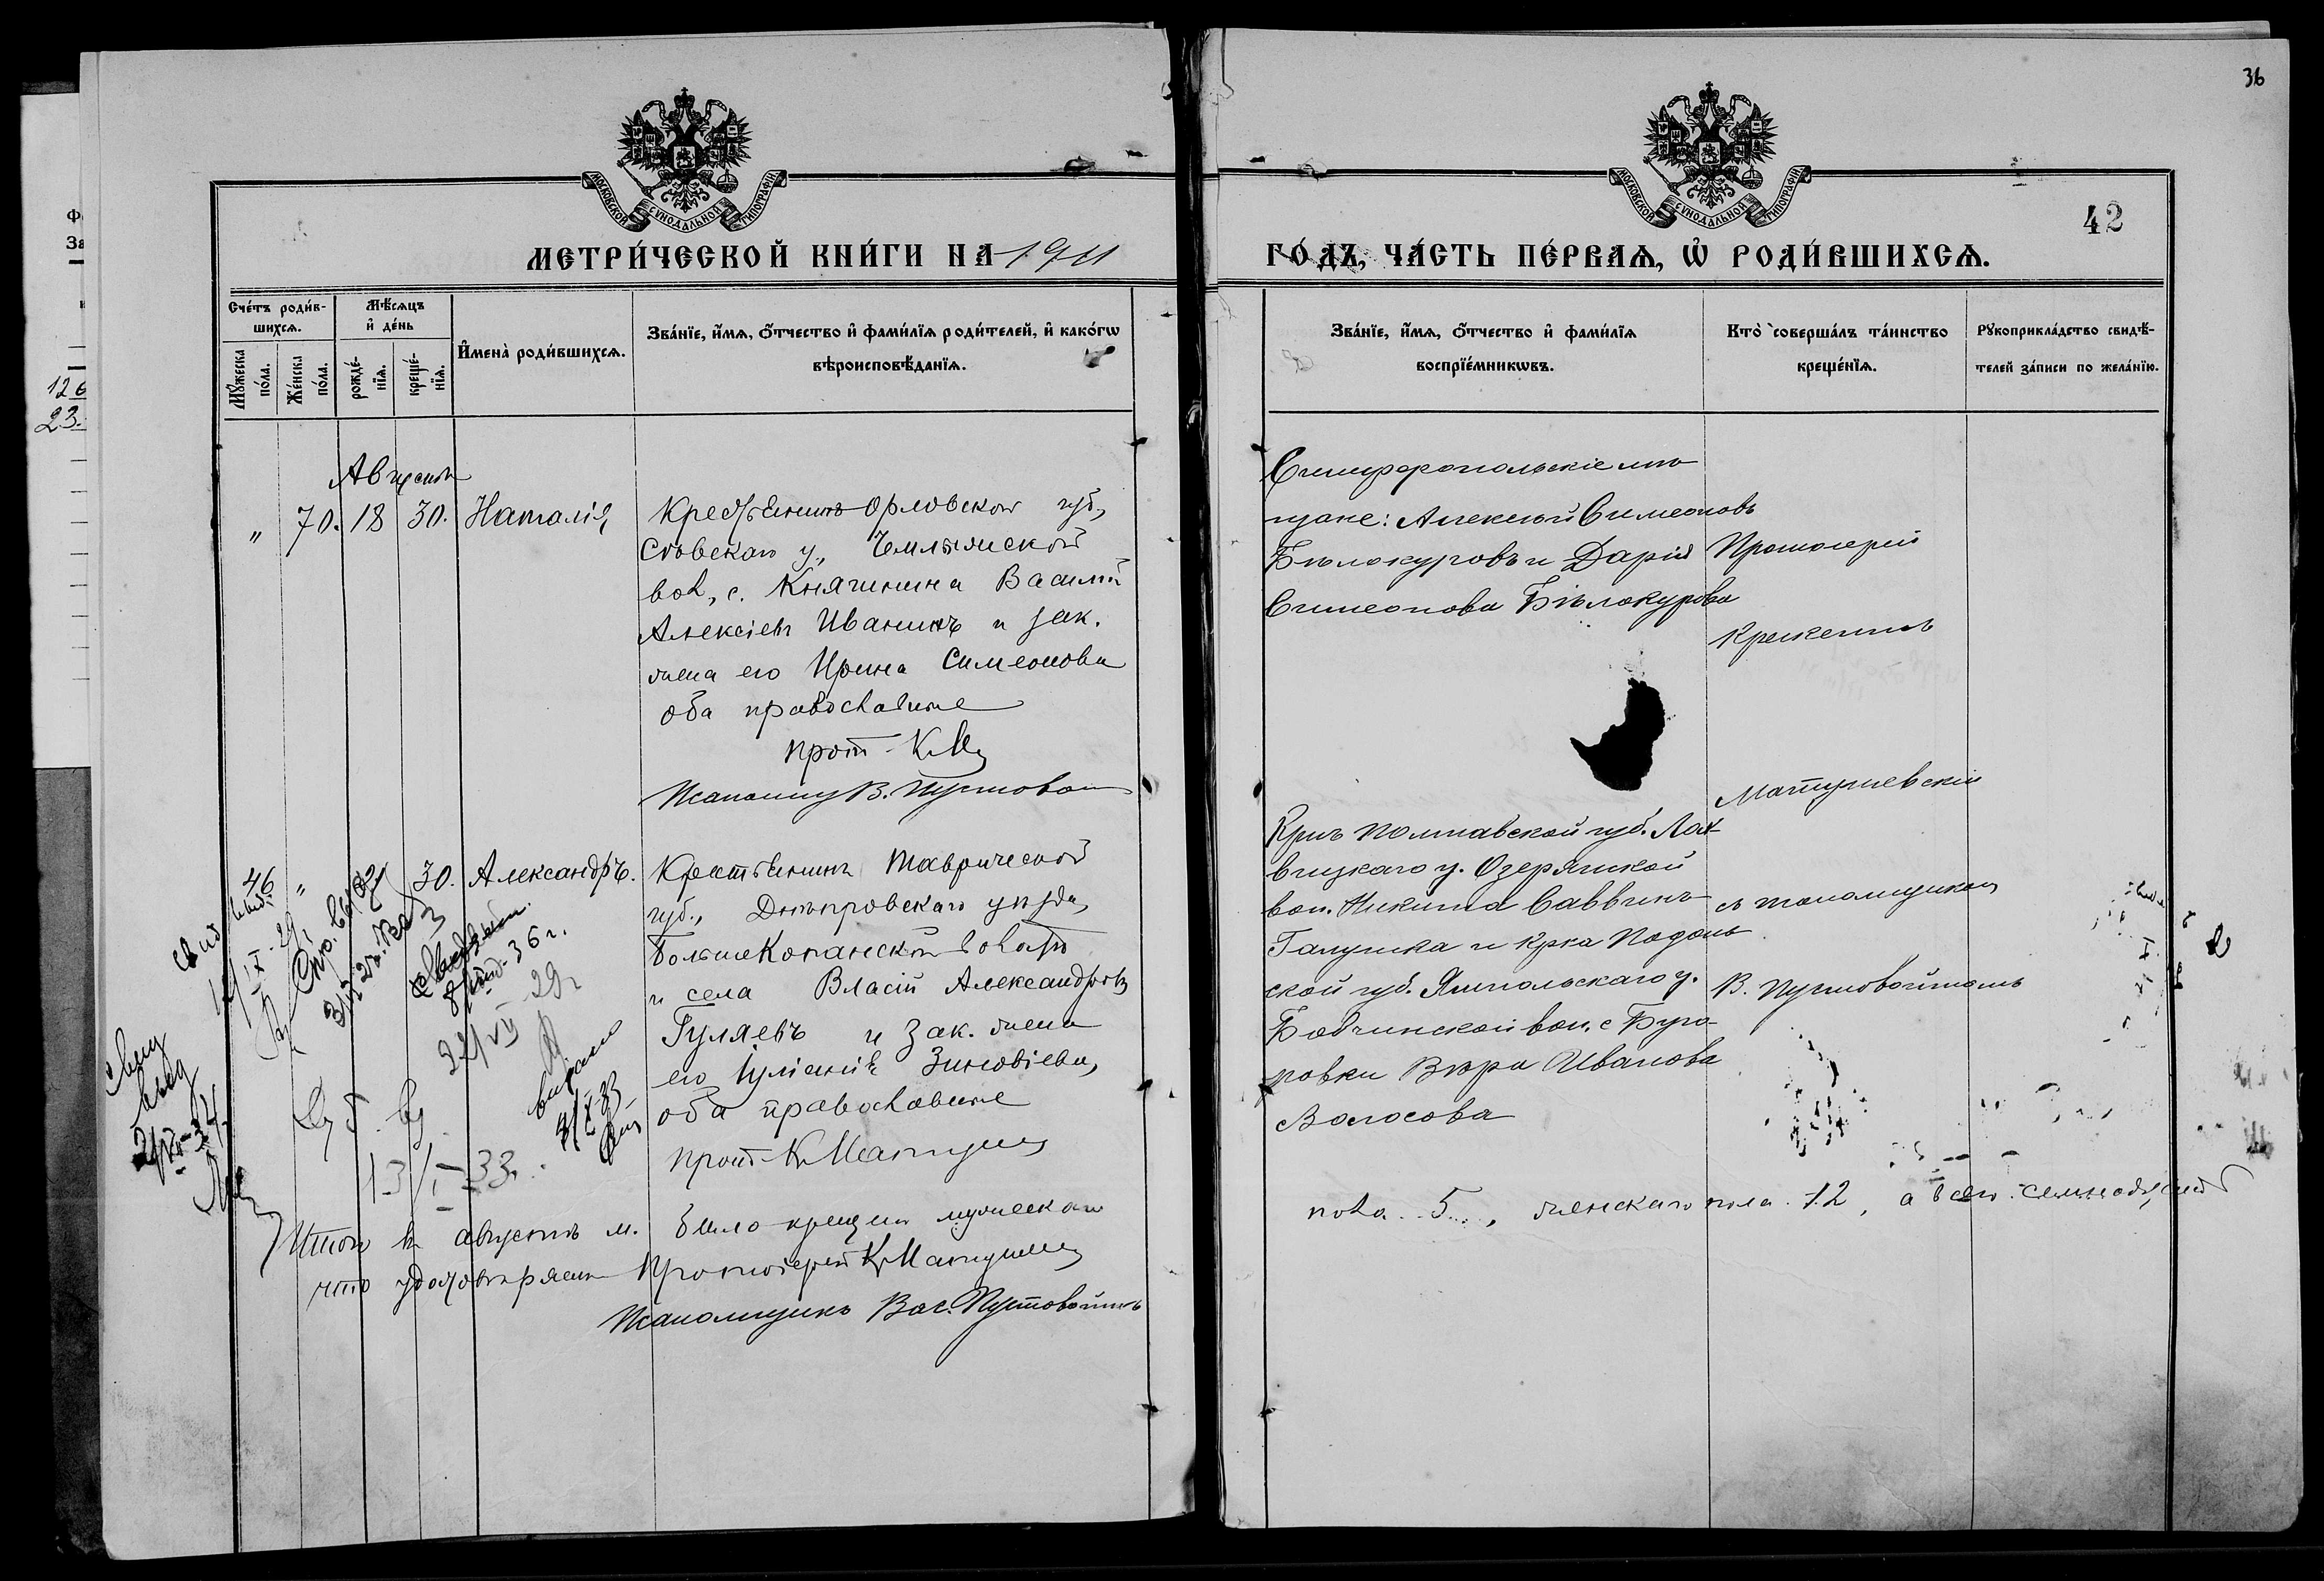 36
42
МОСКОВСКОЙ СѴНОДАЛЬНОЙ ТИПОГРАФІИ
МОСКОВСКОЙ СѴНОДАЛЬНОЙ ТИПОГРАФІИ
МЕТРИ́ЧЕСКОЙ КНИ́ГИ НА 1911
ГО́ДЪ, ЧА́СТЬ ПЕ́РВАѦ, Ѡ҆ РОДИ́ВШИХСѦ.
Сче́тъ роди́в-
шихсѧ.
Мѣ́сѧцъ
и҆ де́нь
Мꙋ́жеска по́ла.
Же́нска по́ла.
рожде́-
нїѧ.
креще́-
нїѧ.
И҆мена̀ роди́вшихсѧ.
Зва́нїе, и҆́мѧ, ѻ҆́тчество и҆ фами́лїѧ роди́телей, и҆ како́гѡ
вѣроисповѣ́данїѧ.
Зва́нїе, и҆́мѧ, ѻ҆́тчество и҆ фами́лїѧ
воспрїе́мникѡвъ.
Кто̀ соверша́лъ та́инство
креще́нїѧ.
Рꙋкоприкла́дство свидѣ́-
телей за́писи по жела́нїю.
126
23.
Августъ
" 70. 18 30. Наталія
Крестьянинъ Орловской губ.,
Сѣвскаго у.,
вол., с. Княгинина Василій
Алексіевъ Иванинъ и зак.
жена его Ирина Симеонова
оба православные
прот. К. М
Псаломщ В. Пустовой
Симферопольскіе мѣ-
щане: Алексѣй Симеоновъ
Бѣлокуровъ и Дарія
Симеонова Бѣлокурова
Протоіерей
Матушевскій
съ псаломщикомъ
В. Пустовойтомъ
46 " 30. Александръ.
Крестьянинъ Таврической
губ., Днѣпровскаго уѣзда,
БольшеКопанской волости
и села Власій Александровъ
Гуляевъ и зак. жена
его Іуліанія Зиновіева,
оба православные
прот. К. Матуш
Крнъ Полтавской губ. Лох-
вицкаго у. Озерянской
вол. Никита Саввинъ
Галушка и крка Подоль
ской губ. Ямпольскаго у.
Бабчинской вол. с
Вѣра Иванова
Волосова
36 г.
22/VI 29 г
13/I 33.
Итого въ августѣ м. было крещено мужескаго
пола 5, женскаго пола 12, а всего семнадцать
что удостовѣряемъ Протоіерей К. Матуш
Псаломщикъ Вас. Пустовойтъ